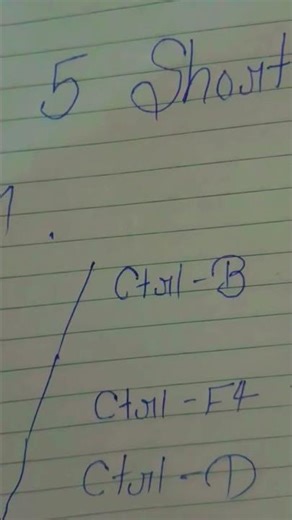 5 Short
1.
Ctrl - B
Ctrl - F4
Ctrl - D